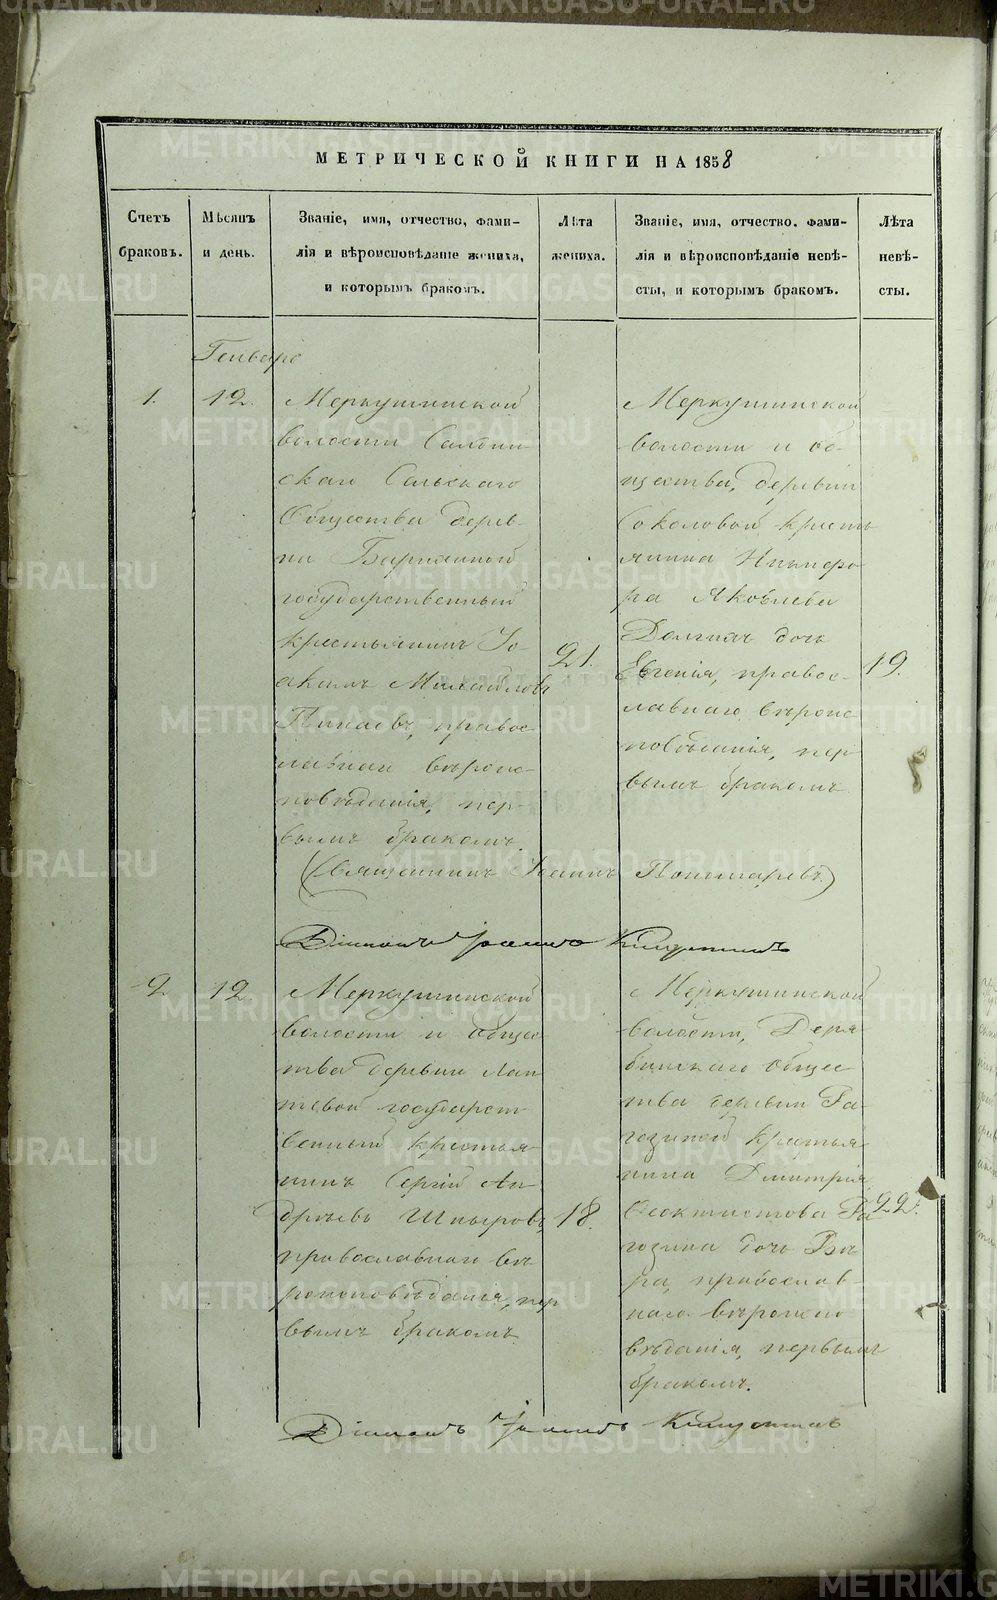 МЕТРИЧЕСКОЙ КНИГИ НА 1858
Счетъ браковъ.
Мѣсяцъ и день.
Званіе, имя, отчество, фами-
лія и вѣроисповѣданіе жениха,
и которымъ бракомъ.
Лѣта жениха.
Званіе, имя, отчество, фами-
лія и вѣроисповѣданіе невѣ-
сты, и которымъ бракомъ.
Лѣта невѣ-
сты.
Генваря
1.
12.
Меркушинской
волости Салдин-
скаго Сельскаго
Общества дерев-
ни
государственный
крестьянинъ Іо-
акимъ Михайловъ
правос-
лавнаго вѣроис-
повѣданія, пер-
вымъ бракомъ.
21.
Меркушинской
волости и об-
щества, деревни
Соколовой кресть
янина Никифо-
ра Яковлева
дочь
Евгенія, правос-
лавнаго вѣроис
повѣданія, пер
вымъ бракомъ.
19.
(Священникъ Іоаннъ Пономаревъ.)
Діаконъ Іоаннъ
2.
12.
Меркушинской
волости и общес
тва деревни Лап
тевой государст
венный крестья-
нинъ Сергій Ан-
дреевъ
православнаго вѣ
роисповѣданія, пер
вымъ бракомъ
18.
Меркушинской
волости, Деря-
бинскаго общес
тва деревни Ра-
гозиной крестья
нина Димитрія
Феоктистова Ра
гозина дочь Вѣ
ра, православ-
наго вѣроиспо-
вѣданія, первымъ
бракомъ.
22.
Діаконъ Іоаннъ
METRIKI.GASO-URAL.RU